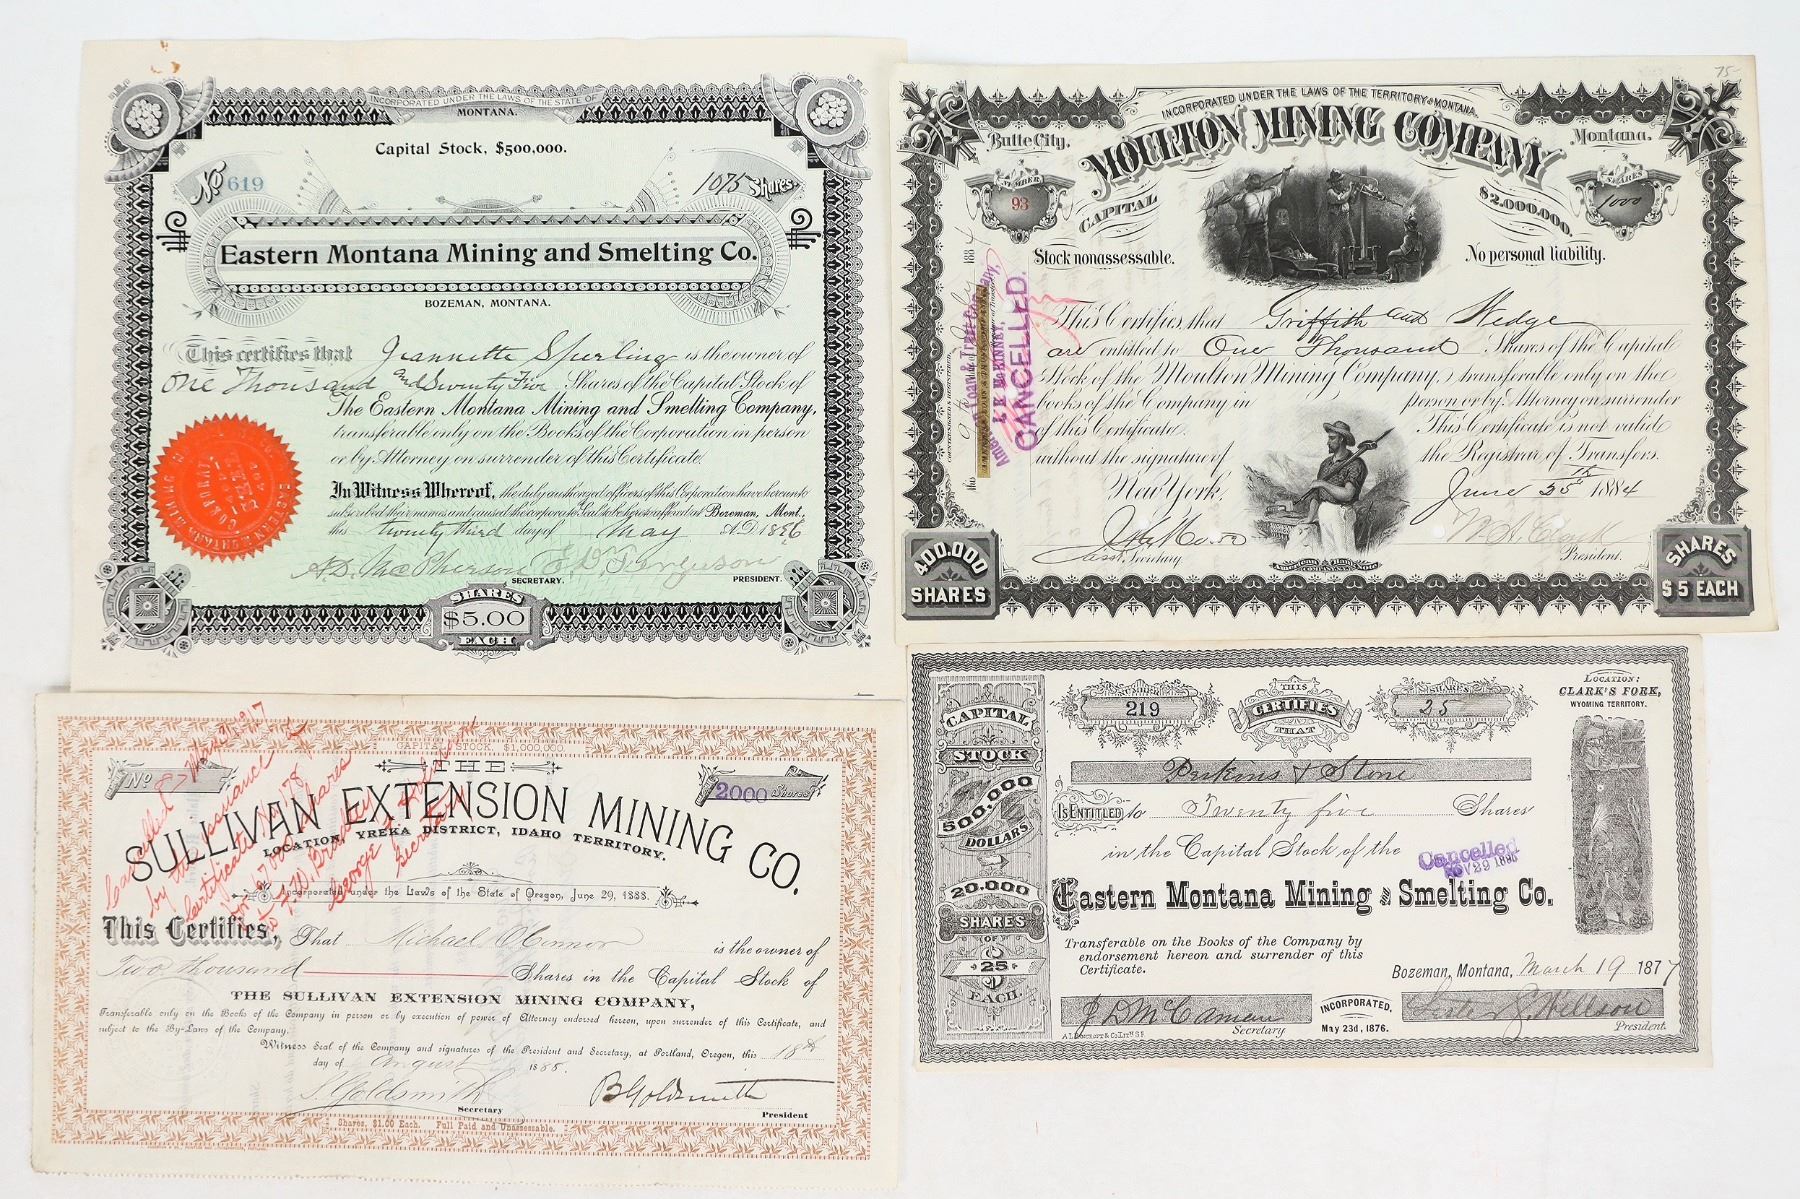 INCORPORATED UNDER THE LAWS OF THE STATE OF
MONTANA.
Capital Stock, $500,000.
No 619
1075 Shares
Eastern Montana Mining and Smelting Co.
BOZEMAN, MONTANA.
This certifies that Jeannette Sperling is the owner of
One Thousand and Seventy Five Shares of the Capital Stock of
The Eastern Montana Mining and Smelting Company,
transferable only on the Books of the Corporation in person
or by Attorney on surrender of this Certificate.
In Witness Whereof, the duly authorized officers of this Corporation have hereunto
subscribed their names and caused the corporate Seal to be hereto affixed at Bozeman, Mont.,
this twenty third day of May A.D. 1896
A.D. McPherson E. W. Ferguson
SECRETARY. PRESIDENT.
SHARES
$5.00
EACH
75-
INCORPORATED UNDER THE LAWS OF THE TERRITORY OF MONTANA.
Butte City. Montana.
MOULTON MINING COMPANY
NUMBER
93
SHARES
1000
CAPITAL $2.000.000.
Stock nonassessable. No personal liability.
This Certifies that Griffith and Wedge
are entitled to One Thousand Shares of the Capital
Stock of the Moulton Mining Company, transferable only on the
books of the Company in person or by Attorney on surrender
of this Certificate. This Certificate is not valid
without the signature of the Registrar of Transfers.
New York, June 25th 1884
Asst. Secretary W. A. Clark
President.
400.000
SHARES
SHARES
$5 EACH
COUNTERSIGNED & REGISTERED
CANCELLED
CAPITAL STOCK, $1,000,000
No 87
2000 Shares
THE
SULLIVAN EXTENSION MINING CO.
LOCATION, YREKA DISTRICT, IDAHO TERRITORY.
Incorporated under the Laws of the State of Oregon, June 29, 1888.
Cancelled
by the issuance of
Certificate No 178
for 2000 shares
Secretary
This Certifies, That Michael O'Connor is the owner of
Two thousand Shares in the Capital Stock of
THE SULLIVAN EXTENSION MINING COMPANY,
Transferable only on the Books of the Company in person or by execution of power of Attorney endorsed hereon, upon surrender of this Certificate, and
subject to the By-Laws of the Company.
Witness Seal of the Company and signatures of the President and Secretary, at Portland, Oregon, this 18th
day of August 1888.
S. Goldsmith B Goldsmith
Secretary President
Shares, $1.00 Each. Full Paid and Unassessable.
CAPITAL
STOCK
500,000
DOLLARS
20.000
SHARES
OF
25
EACH.
219
THIS
CERTIFIES
THAT
SHARES
25
LOCATION:
CLARK'S FORK,
WYOMING TERRITORY.
Perkins & Stone
IS ENTITLED to Twenty five Shares
in the Capital Stock of the
Cancelled
NOV 29 1895
Eastern Montana Mining and Smelting Co.
Transferable on the Books of the Company by
endorsement hereon and surrender of this
Certificate.
Bozeman, Montana, March 19 1877
J D McCaman
Secretary
INCORPORATED.
May 23d, 1876.
Lester S. Willson
President.
A.L. BANCROFT & CO. LITH. S.F.